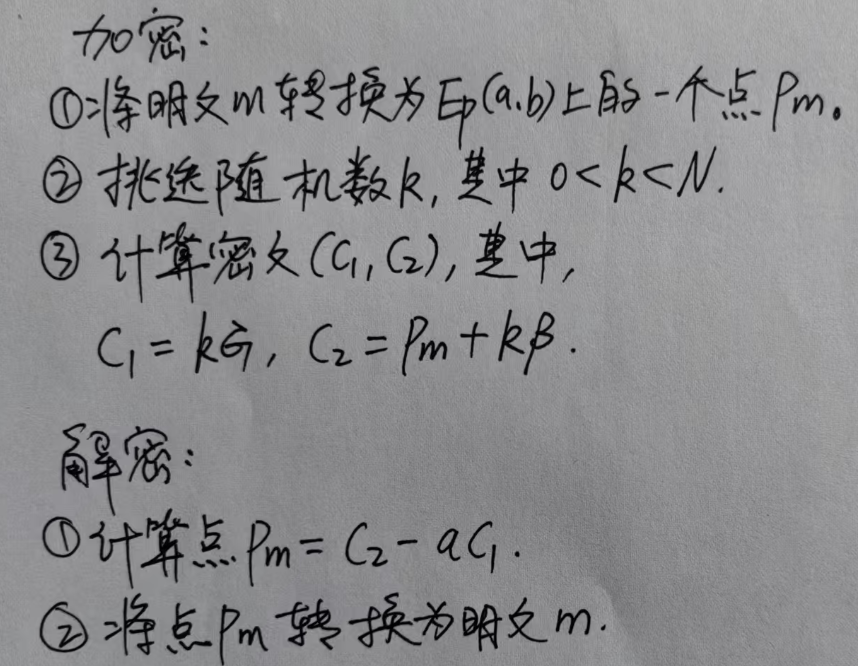 加密：
①将明文m转换为Ep(a,b)上的一个点Pm。
②挑选随机数k, 其中 0<k<N.
③计算密文(C₁,C₂), 其中,
C₁=kG, C₂=Pm+kβ.
解密：
①计算点Pm=C₂-aC₁.
②将点Pm转换为明文m.